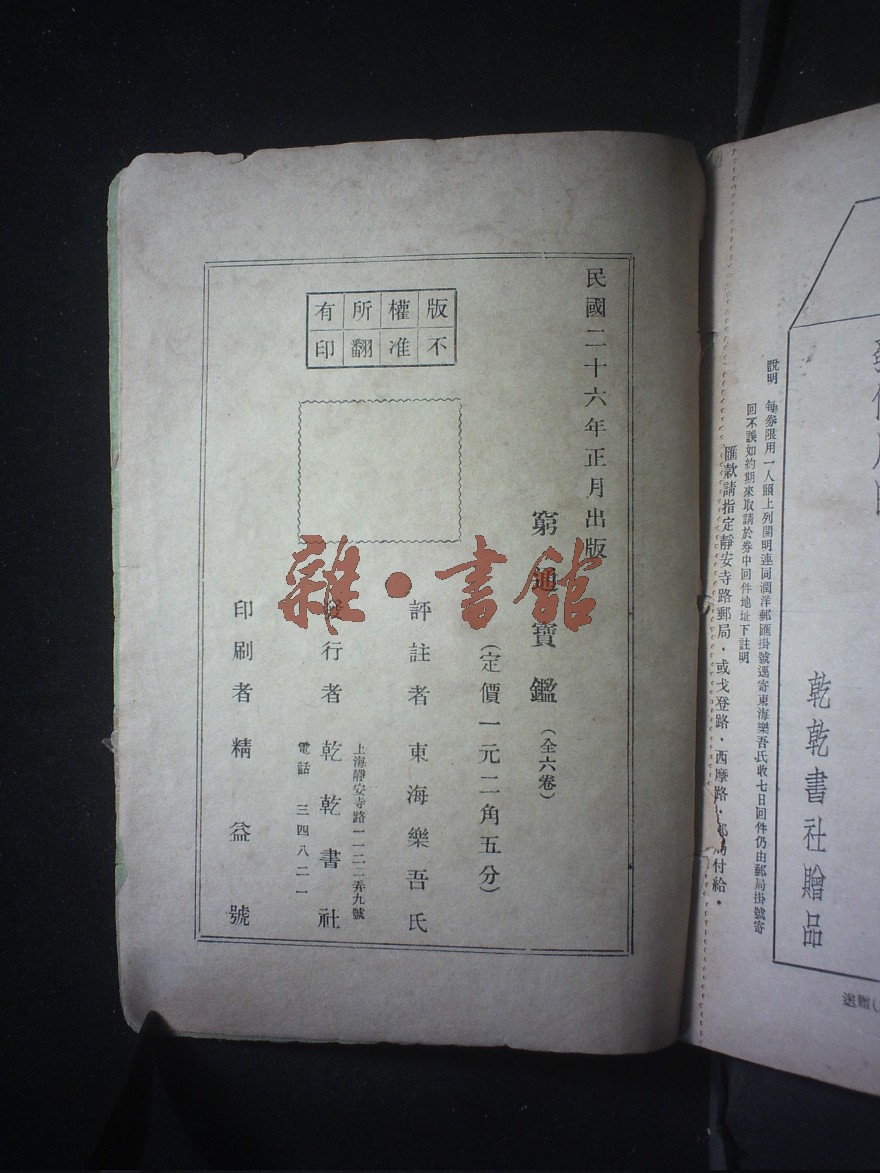 民國二十六年正月出版
窮通寶鑑(全六卷)
(定價一元二角五分)
版權所有
不准翻印
評註者 東海樂吾氏
上海靜安寺路一一二二弄九號
發行者 乾乾書社
電話 三四八二一
印刷者 精益號
雜·書館
乾乾書社贈品
說明 每券限用一人願上列開明連同潤洋郵匯掛號逕寄東海樂吾氏收七日回件仍由郵局掛號寄
回不誤如約期來取請於券中回件地址下註明
匯款請指定靜安寺路郵局·或戈登路·西摩路·郵局付給·